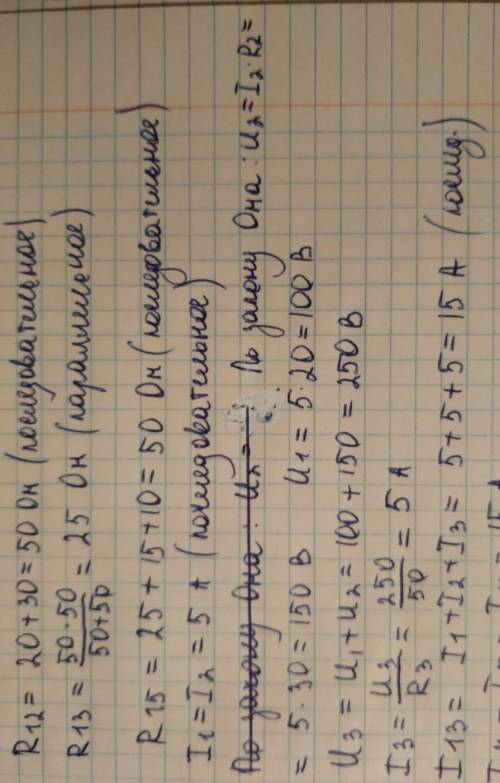 R12 = 20+30 = 50 Ом (последовательное)
R13 = 50·50 / 50+50 = 25 Ом (параллельное)
R15 = 25+15+10 = 50 Ом (последовательное)
I1 = I2 = 5 А (последовательное)
По закону Ома: U2 = По закону Ома: U2 = I2·R2 =
= 5·30 = 150 В U1 = 5·20 = 100 В
U3 = U1+U2 = 100+150 = 250 В
I3 = U3 / R3 = 250 / 50 = 5 А
I13 = I1+I2+I3 = 5+5+5 = 15 А (послед.)